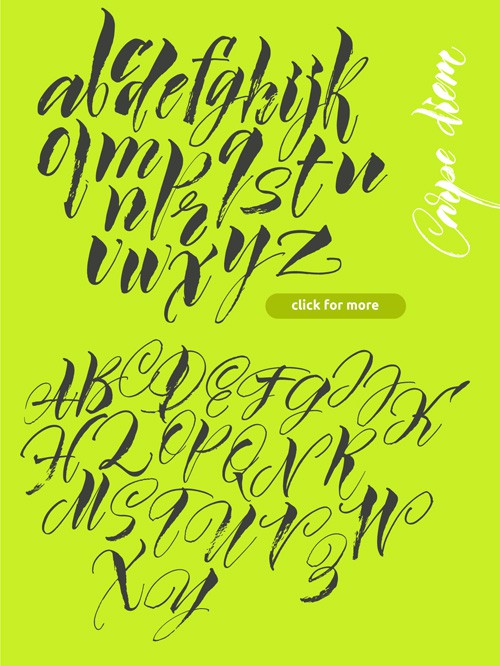 abcdefghijk
olmnprqstu
vwxyz
Carpe diem
click for more
ABCDEFGIJK
HLOPQNR
MSTUVW
XYZ